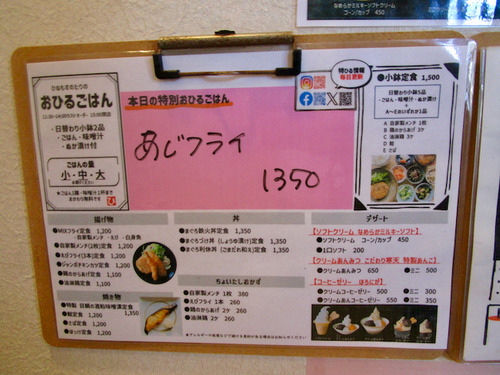 なめらかミルキーソフトクリーム
コーン/カップ 450
おひるごはん
・日替わり小鉢2品
・ごはん・味噌汁
・ぬか漬け付
ごはんの量
小・中・大
本日の特別おひるごはん
あじフライ
1350
特ひる情報
毎日更新
●小鉢定食 1,500
日替わり小鉢5品
・ごはん・味噌汁・ぬか漬け
+
A～Eのいずれか1品
A 自家製メンチ 1枚
B 鶏のからあげ 3ケ
C 油淋鶏 3ケ
D 鮭
E さば
揚げ物
●MIXフライ定食 1,200
・自家製メンチ ・えび ・白身魚
●自家製メンチ(2枚)定食 1,200
●えびフライ(3本)定食 1,200
●ジャンボチキンカツ定食 1,200
●鶏のからあげ定食 1,200
●油淋鶏定食 1,200
焼き物
●特製 目鯛の西京味噌漬定食 1,350
●鮭定食 1,200
●さば定食 1,200
●ほっけ定食 1,300
丼
●まぐろ鉄火丼定食 1,350
●まぐろづけ丼 (しょうゆ漬け)定食 1,350
●まぐろ利休丼 (ごまだれ和え)定食 1,350
ちょいたしおかず
●自家製メンチ 1枚 380
●えびフライ 1本 260
●鶏のからあげ 2ケ 260
●油淋鶏 2ケ 260
デザート
【ソフトクリーム なめらかミルキーソフト】
●ソフトクリーム コーン/カップ 450
●1口ソフト 200
【クリームあんみつ こだわり寒天 特製あんこ】
●クリームあんみつ 650 ●ミニ 500
【コーヒーゼリー ほろにが】
●クリームコーヒーゼリー 500 ●ミニ 300
●クリームあんコーヒーゼリー 550 ●ミニ 350